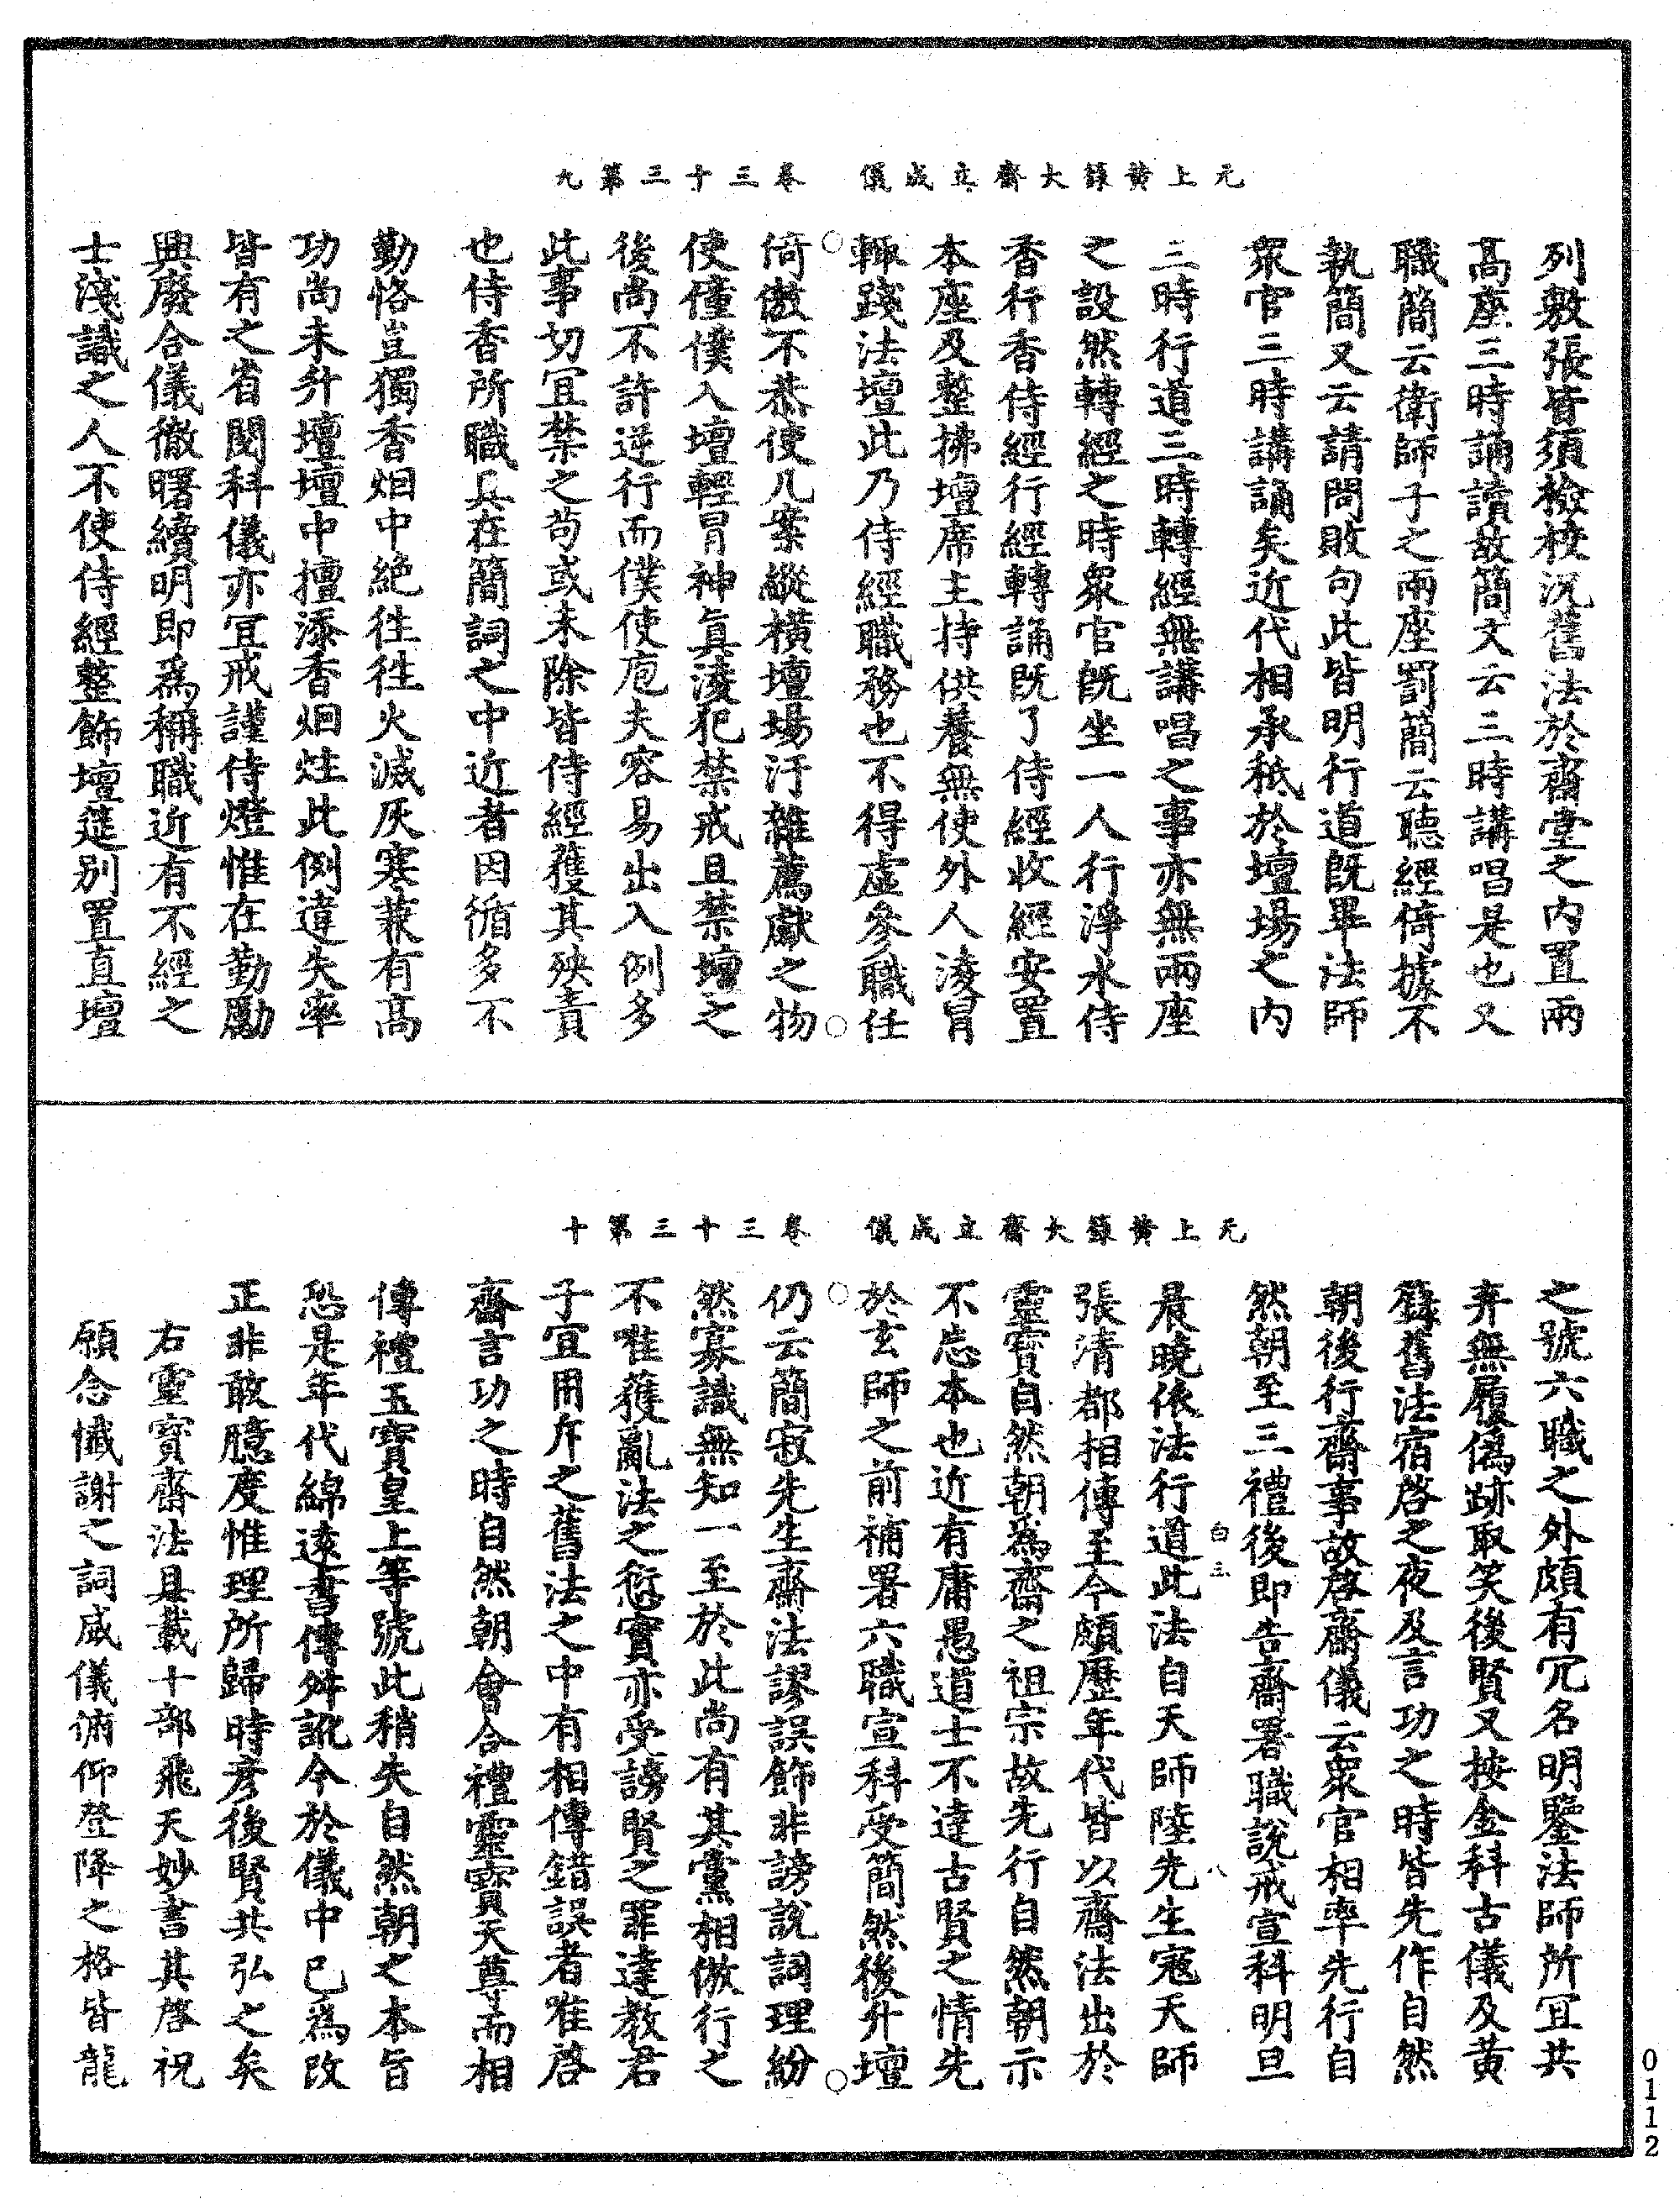 元上黄籙大齋立成儀　卷三十三第九
列敷張皆須檢校況舊法於齋堂之内置兩
高座三時誦讀故簡文云三時講唱是也又
職簡云衛師子之兩座罰簡云聽經倚據不
執簡又云請問敗句此皆明行道既畢法師
衆官三時講誦矣近代相承秪於壇場之内
三時行道三時轉經無講唱之事亦無兩座
之設然轉經之時衆官既坐一人行淨水侍
香行香侍經行經轉誦既了侍經收經安置
本座及整拂壇席主持供養無使外人淩冒
輙踐法壇此乃侍經職務也不得虚參職任
倚傲不恭使几案縱横壇場汙雜薦獻之物
使僮僕入壇輕冒神眞淩犯禁戒且禁壇之
後尚不許逆行而僕使庖夫容易出入例多
此事切冝禁之苟或未除皆侍經獲其殃責
也侍香所職具在簡詞之中近者因循多不
勤恪豈獨香烟中絶徃徃火滅灰寒兼有高
功尚未升壇壇中擅添香烟炷此例違失率
皆有之省閲科儀亦冝戒謹侍燈惟在勤勵
興廢合儀徹曙續明即爲稱職近有不經之
士淺識之人不使侍經整飾壇筵别置直壇
元上黄籙大齋立成儀　卷三十三第十
之號六職之外頗有冗名明鑒法師所冝共
弃無履僞跡取笑後賢又按金科古儀及黄
籙舊法宿啓之夜及言功之時皆先作自然
朝後行齋事故啓齋儀云衆官相率先行自
然朝至三禮後即告齋署職說戒宣科明旦
白三　八
晨曉依法行道此法自天師陸先生寇天師
張清都相傳至今頗歷年代皆以齋法出於
靈寳自然朝爲齋之祖宗故先行自然朝示
不忘本也近有庸愚道士不達古賢之情先
於玄師之前補署六職宣科受簡然後升壇
仍云簡寂先生齋法謬誤飾非謗說詞理紛
然寡識無知一至於此尚有其黨相倣行之
不唯獲亂法之愆實亦受謗賢之罪達教君
子宜用斥之舊法之中有相傳錯誤者唯啓
齋言功之時自然朝會合禮靈寳天尊而相
傳禮玉寳皇上等號此稍失自然朝之本旨
恐是年代綿遠書傳舛訛今於儀中已爲改
正非敢臆度惟理所歸時彦後賢共弘之矣
右靈寳齋法具載十部飛天妙書其啓祝
願念懺謝之詞威儀俯仰登降之格皆龍
0112